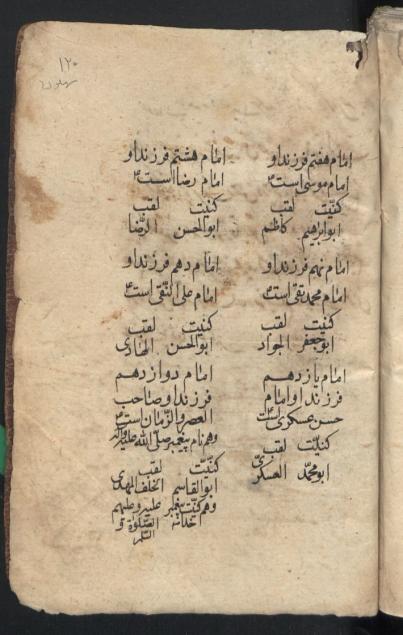 ۱۲۰
امام هفتم فرزند او
امام موسی است
کنیت لقب
ابو ابراهیم کاظم
امام هشتم فرزند او
امام رضا است
کنیت لقب
ابوالحسن الرّضا
امام نهم فرزند او
امام محمد تقی است
کنیت لقب
ابوجعفر الجواد
امام دهم فرزند او
امام علی النّقی است
کنیت لقب
ابوالحسن الهادی
امام یازدهم
فرزند او امام
حسن عسکری است
کنیّت لقب
ابو محمّد العسکریّ
امام دوازدهم
فرزند او صاحب
العصر و الزّمان است
و هم نام پیغمبر صلّی الله علیه وآله
کنیّت لقب
ابوالقاسم الخلف المهدی
و هم کنیت پیغمبر علیه و علیهم
الصّلوة و
السّلم